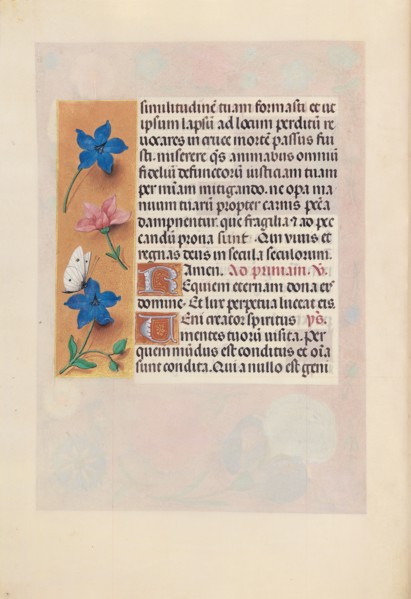 similitudinē tuam formasti et ut
ipsum lapsū ad locum perditū re
vocares in cruce mortē passus fui
sti. miserere q̄s animabus omniū
fideliū defunctorū iusticiam tuam
per mīam mitigando. ne opa ma
nuum tuarū propter carnis pctā
dampnentur. que fragilia et ad pec
candū prona sunt. Qui vivis et
regnas deus in secula seculorum.
Amen. Ad primam. V.
Requiem eternam dona eis
domine. Et lux perpetua luceat eis.
Veni creator spiritus yp̄s.
mentes tuorū visita. Per
quem mūdus est conditus et oīa
sunt condita. Qui a nullo est geni